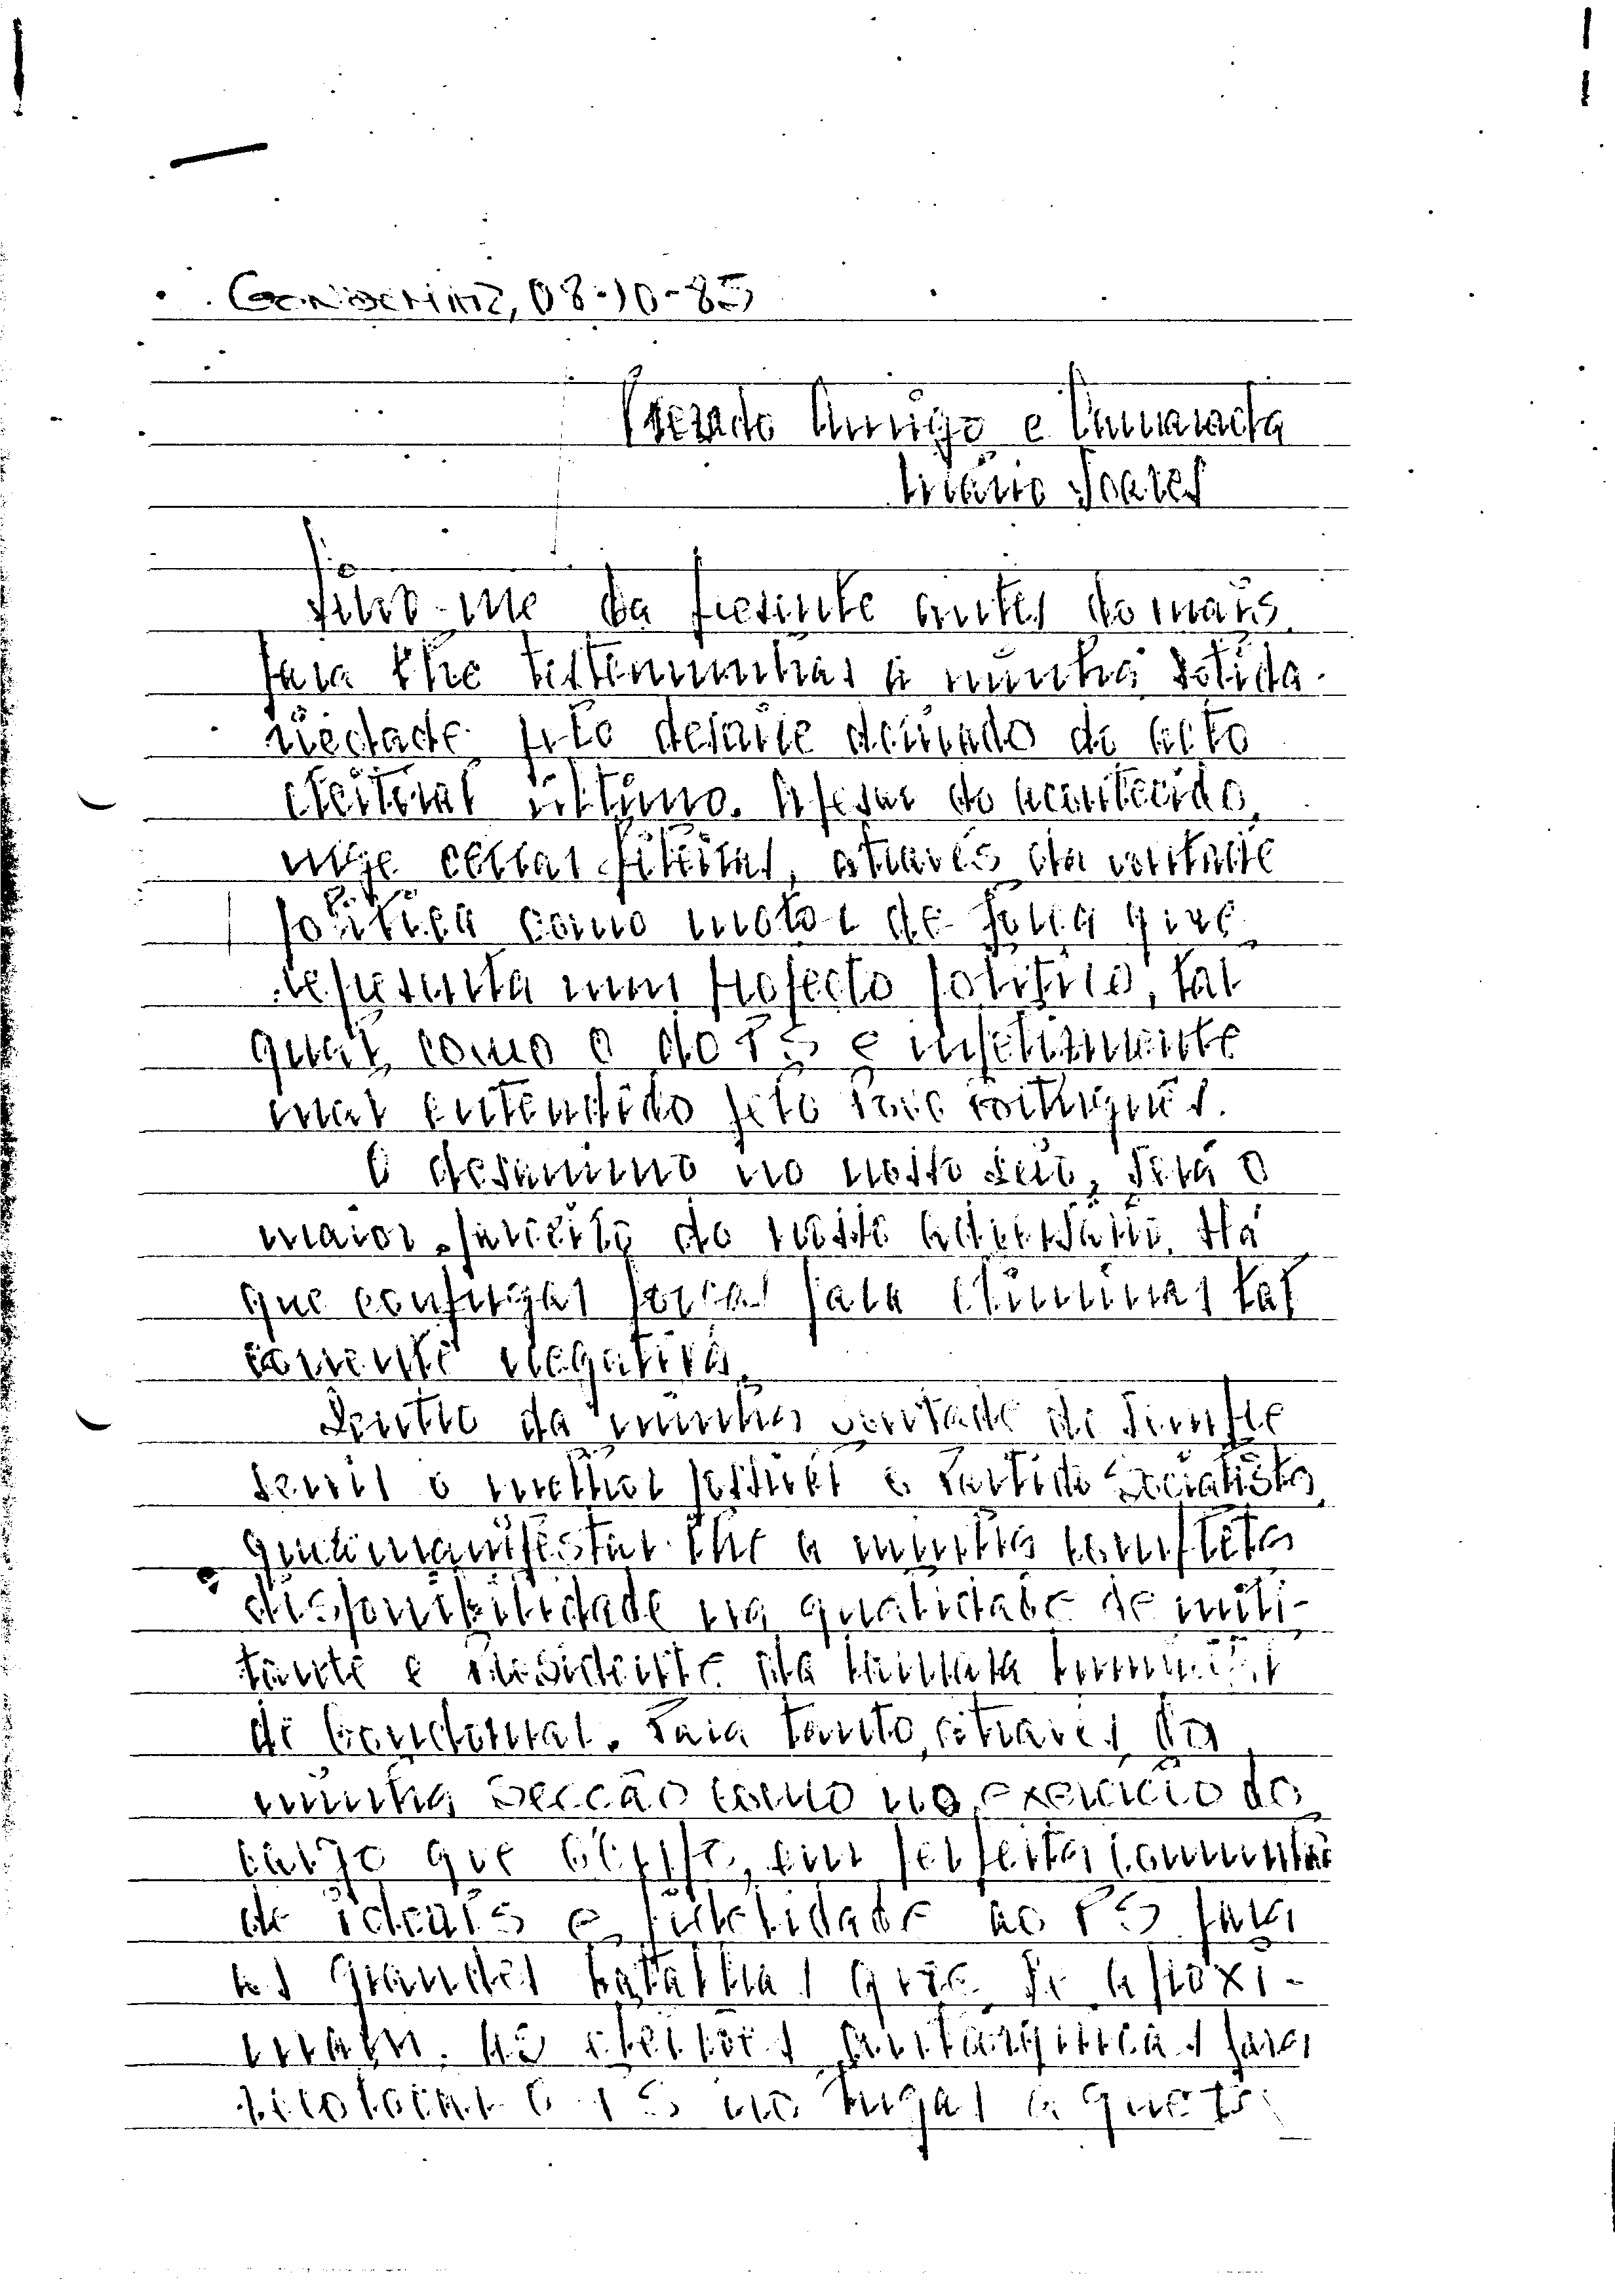 Gondomar, 08-10-85
Prezado Amigo e Camarada
Mário Soares
Sirvo-me da presente antes do mais,
para lhe testemunhar a minha solida-
riedade pelo desaire derivado do acto
eleitoral último. Apesar do acontecido,
urge cerrar fileiras, através da vontade
política como motor de força que
representa num projecto político, tal
qual como o do PS e infelizmente
mal entendido pelo Povo Português.
O desanimo no nosso seio, será o
maior parceiro do nosso adversário. Há
que conjugar forças para eliminar tal
corrente negativa.
Dentro da minha vontade de sempre
servir o melhor possível o Partido Socialista,
quero manifestar-lhe a minha completa
disponibilidade na qualidade de mili-
tante e Presidente da Câmara Municipal
de Gondomar. Para tanto, através da
minha Secção como no exercício do
cargo que ocupo, em perfeita comunhão
de ideais e fidelidade ao PS para
as grandes batalhas que se aproxi-
mam. As eleições autárquicas para
recolocar o PS no lugar a que